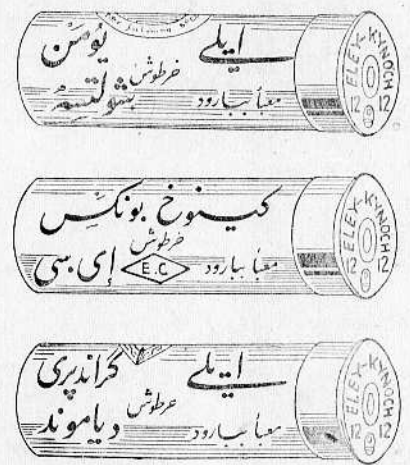 ايلي يومن
خرطوش
معبأ ببارود شولتسه
ELEY-KYNOCH
12 12
كينوخ بونكس
خرطوش
معبأ ببارود E.C إي سي
ELEY-KYNOCH
12 12
ايلي گراندپري
خرطوش
معبأ ببارود دياموند
ELEY-KYNOCH
12 12